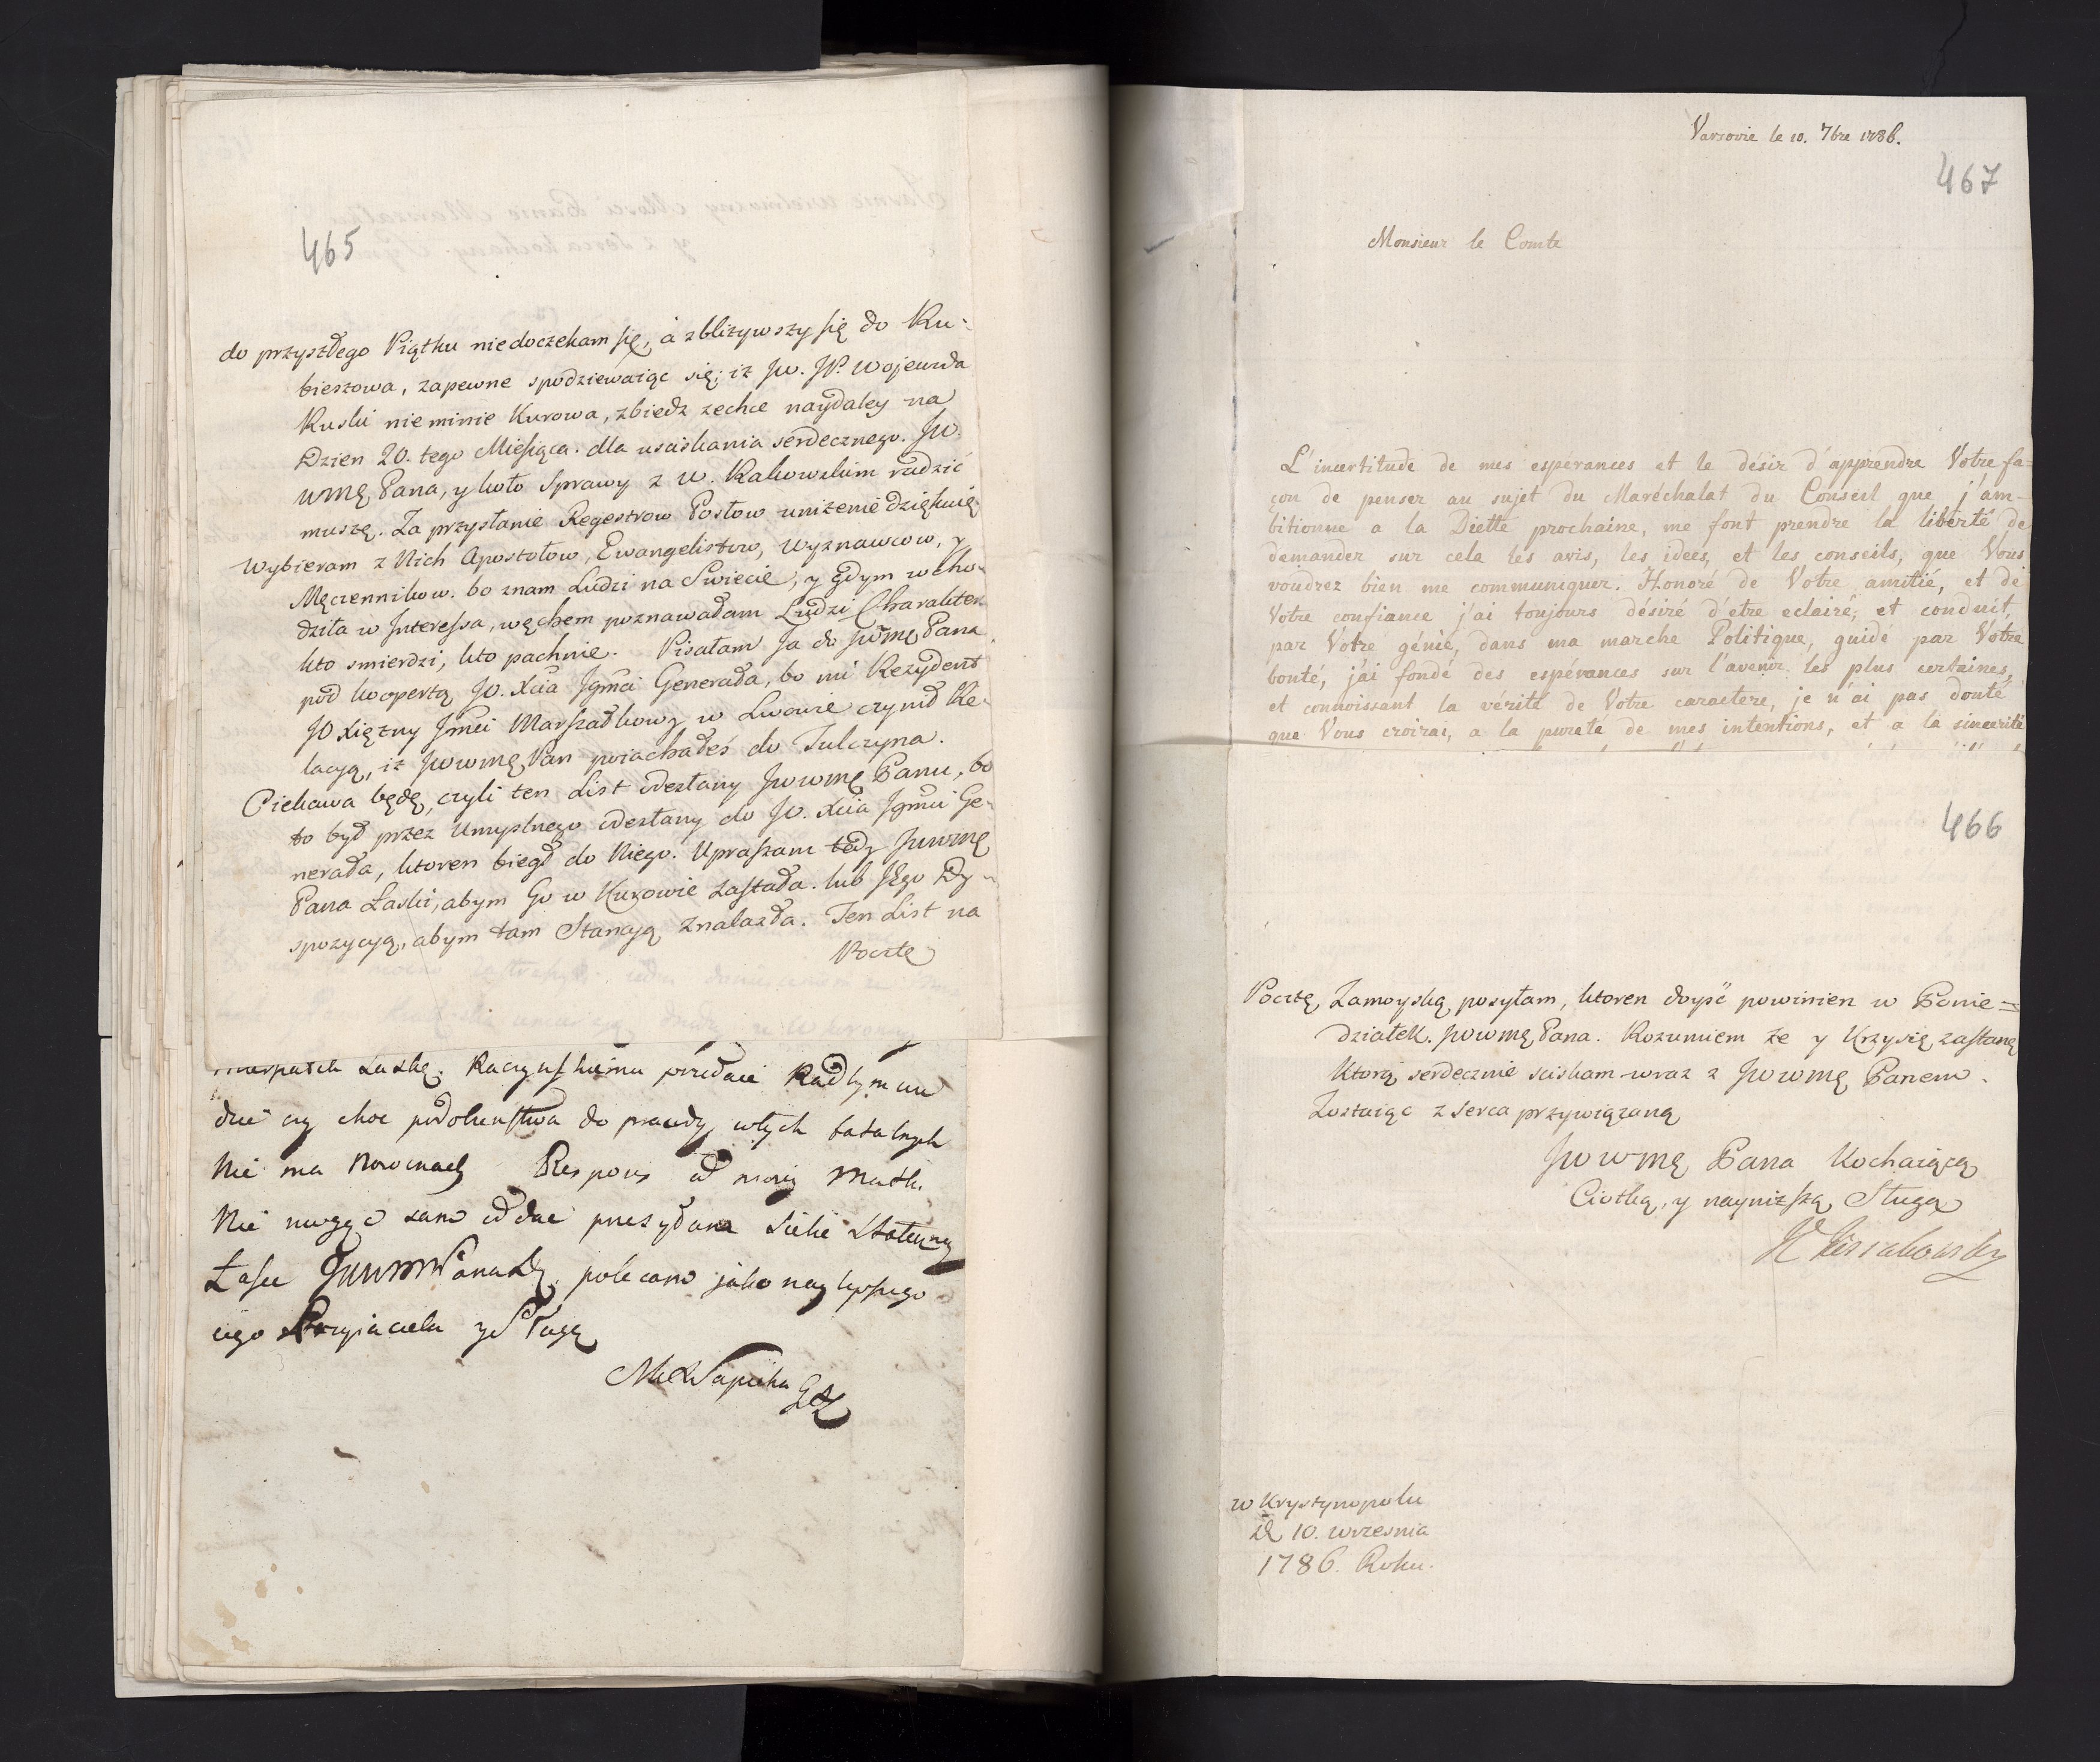 465
do przyszłego Piątku niedoczekam się, à zbliżywszy się do Ku-
bieszowa, zapewne spodziewaiąc się; iż Jw. JP. Wojewoda
Ruski nie minie Kurowa, zbiedz zechce naydaley na
Dzien 20. tego Miesiąca. dla usciskania serdecznego. Jw.
WMę Pana, y koło Sprawy z W. Rakowskim radzić
muszę. Za przysłanie Regestrow Posłow uniżenie dziękuię
Wybieram z Nich Apostołow, Ewangelistow, Wyznawcow, y
Męczennikow. bo znam Ludzi na Swiecie, y gdym wcho-
dziła w Interessa, węchem poznawałam Ludzi Charakter
kto smierdzi, kto pachnie. Pisałam Ja do JWMę Pana
pod kopertą JO. Xcia Jgmci Generała, bo mi Rezydent
JO Xiężny Jmci Marszałkowy w Lwowie czynił Re-
lacyą, iż JWWMę Pan poiachałeś do Tulczyna.
Ciekawa będę, czyli ten List odesłany JWWMę Panu, bo
to był przez Umyslnego odesłany do JO. Xcia Jgmci Ge-
nerała, ktoren biegł do Niego. Upraszam tedy JWWMę
Pana Łaski, abym Go w Kurowie zastała. lub Jego Dy-
spozycyą, abym tam Stancyą znalazła. Ten List na
Pocztę
Laskę. Raczyńskiemu
choc podobienstwa do prawdy wtych fatalnych
Nie ma Nowinach Respons od
Nie mogąc sam oddac przesyłam
Łasce polecam jako naylepszego
iego Przyiaciela y Sługę
Sapieha

Varsovie le 10. 7bre 1786.
467
Monsieur le Comte
L'incertitude de mes espérances et le désir d'apprendre Votre fa=
çon de penser au sujet du Maréchalat du Conseil que j'am-
bitionne a la Diette prochaine, me font prendre la liberté de
demander sur cela les avis, les idees, et les conseils, que Vous
voudrez bien me communiquer. Honoré de Votre amitié, et de
Votre confiance j'ai toujours désiré d'etre eclairé, et conduit,
par Votre génie, dans ma marche Politique, guidé par Votre
bonté, j'ai fondé des espérances sur l'avenir les plus certaines,
et connoissant la vérité de Votre caractere, je n'ai pas douté
que Vous croirai, a la pureté de mes intentions, et a la sincerité
466
Pocztę Zamoyską posyłam, ktoren doyść powinien w Ponie=
działek. JWWMę Pana. Rozumiem ze y Krzysię zastanę
Ktorą serdecznie sciskam wraz z JWWMę Panem.
Zostaiąc z Serca przywiązaną
JWWMę Pana Kochaiącą
Ciotką, y nayniższą Sługą
w Krystynopolu
D. 10. wrzesnia
1786. Roku.